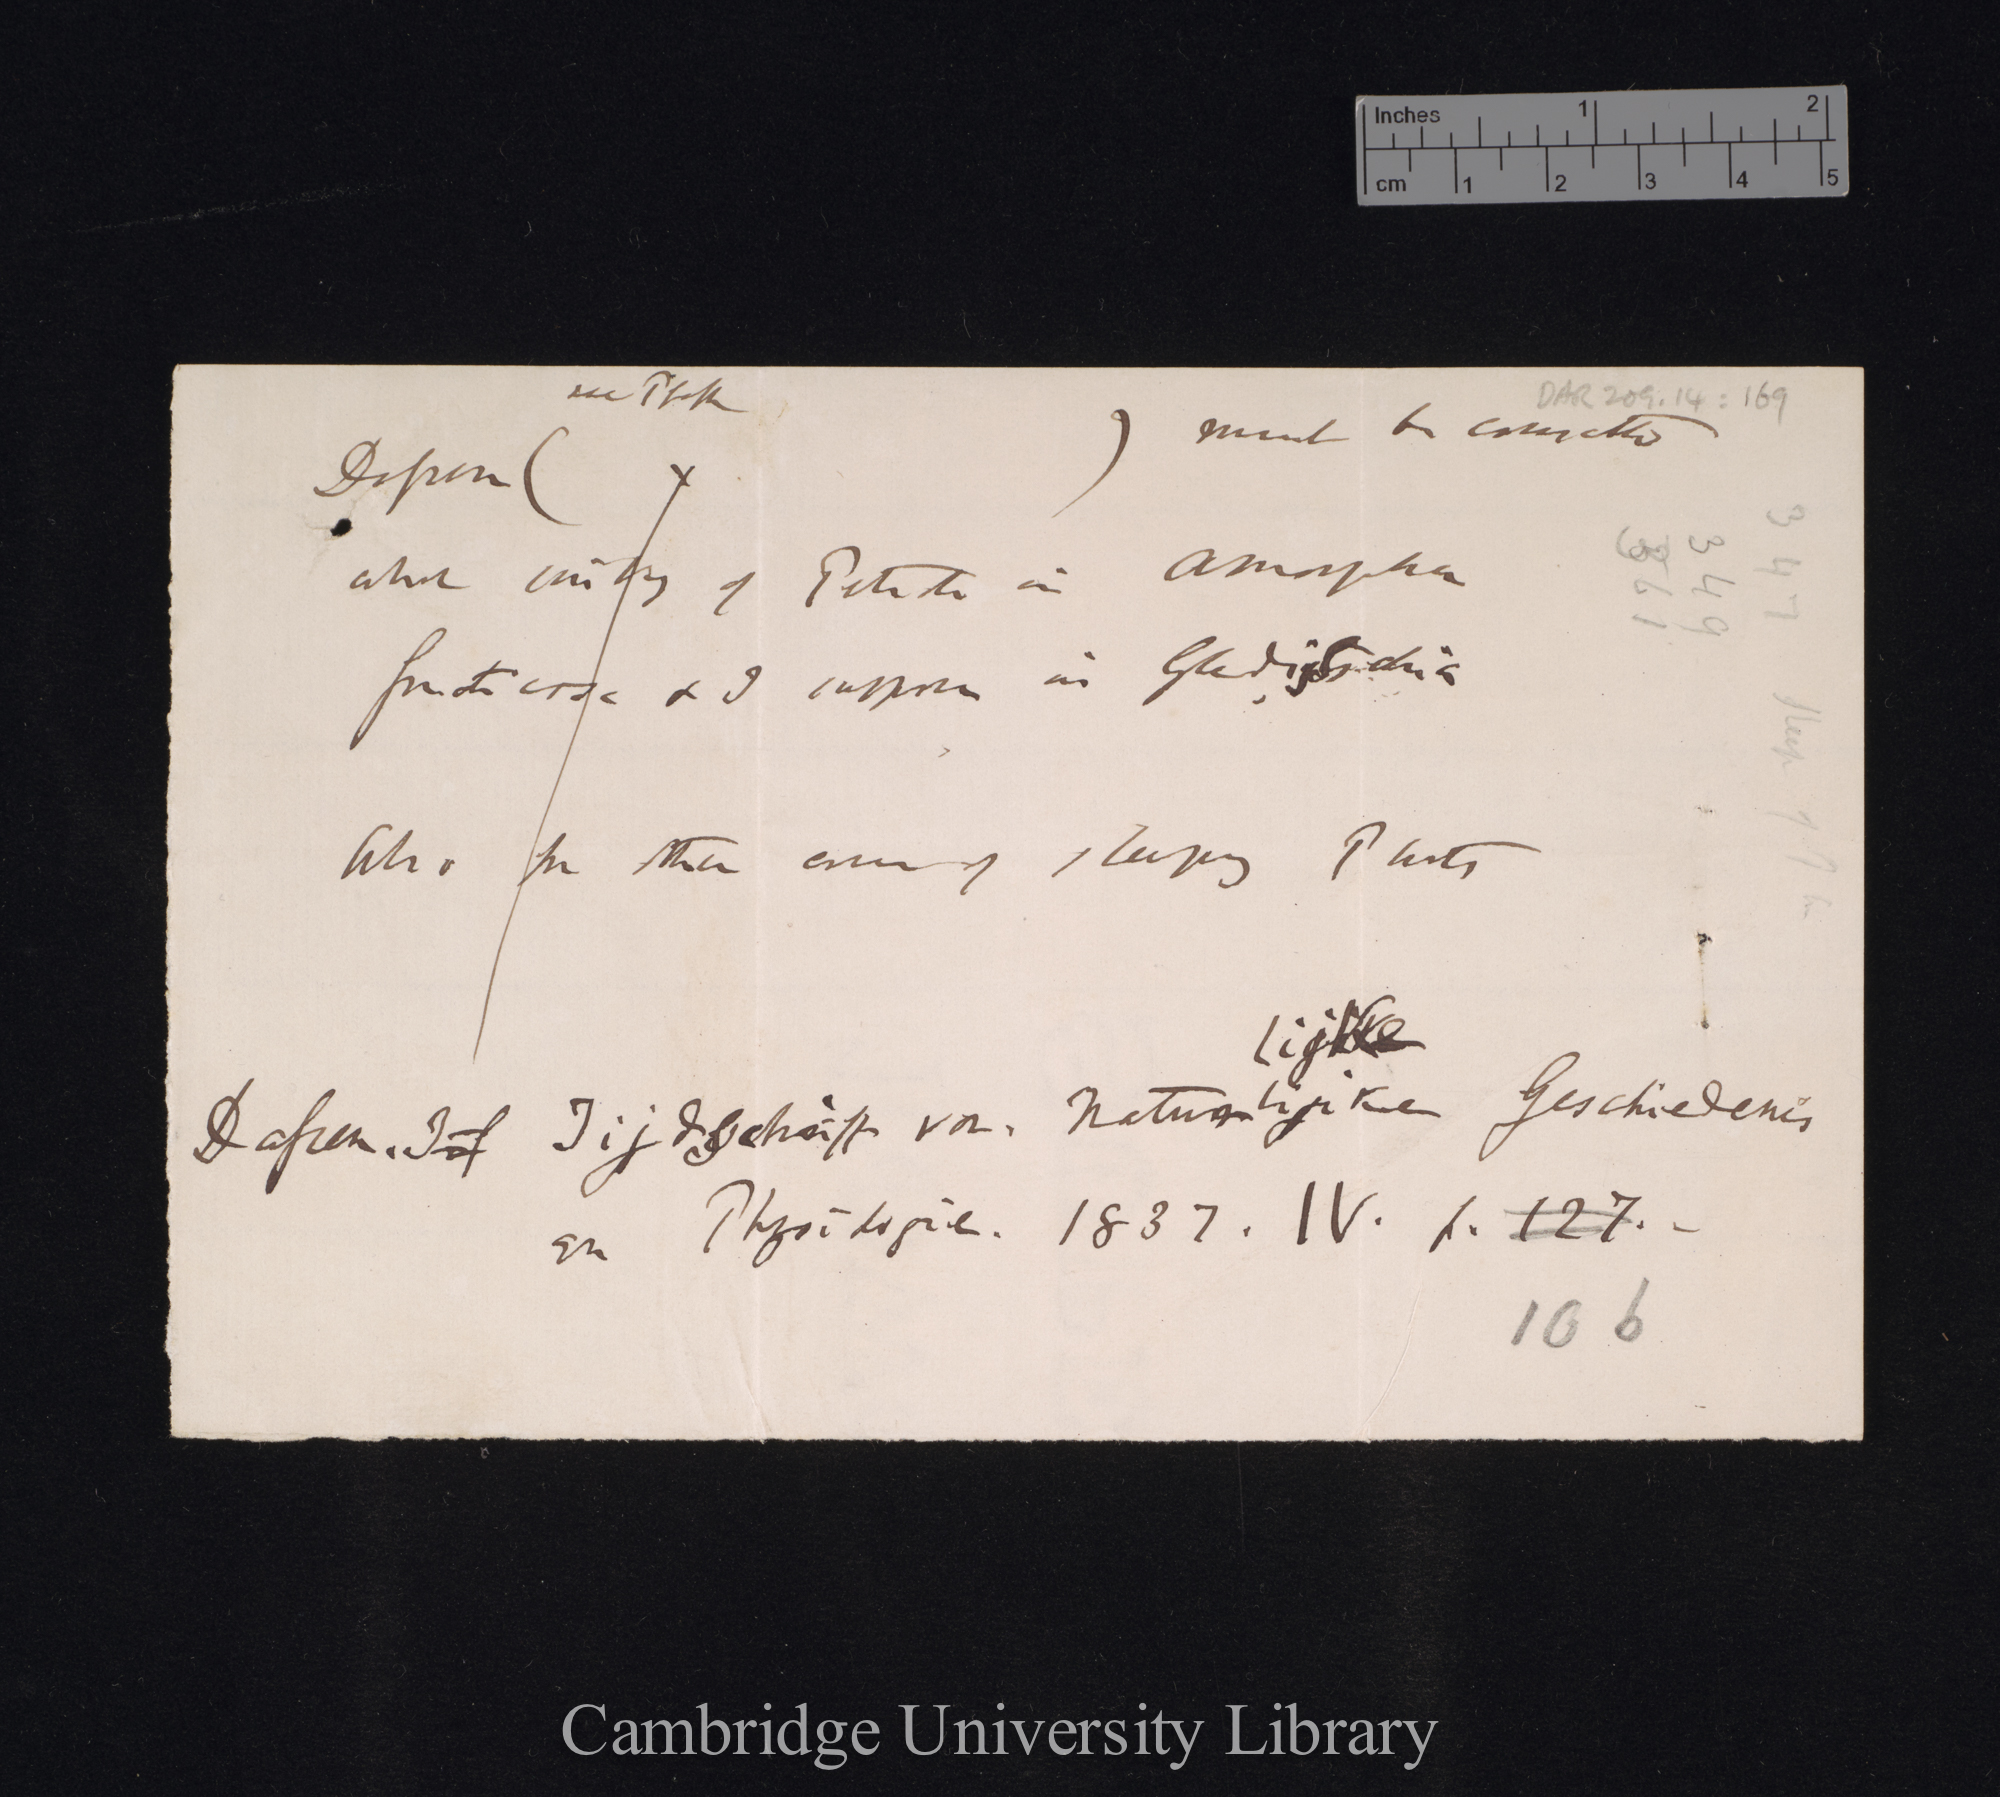 Inches 1 2
cm 1 2 3 4 5
DAR 209.14:169
see Pfeffer
Dassen ( ) must be consulted
about cutting of Petiole in Amorpha
fruticosa & I suppose in Gleditschia
347
349
361
Sleep of
Also for other cases of sleeping Plants
lijke
Dassen. Tijdschrift von. Naturlijike Geschiedenis
en Physiologie. 1837. IV. p. 127. -
106
Cambridge University Library